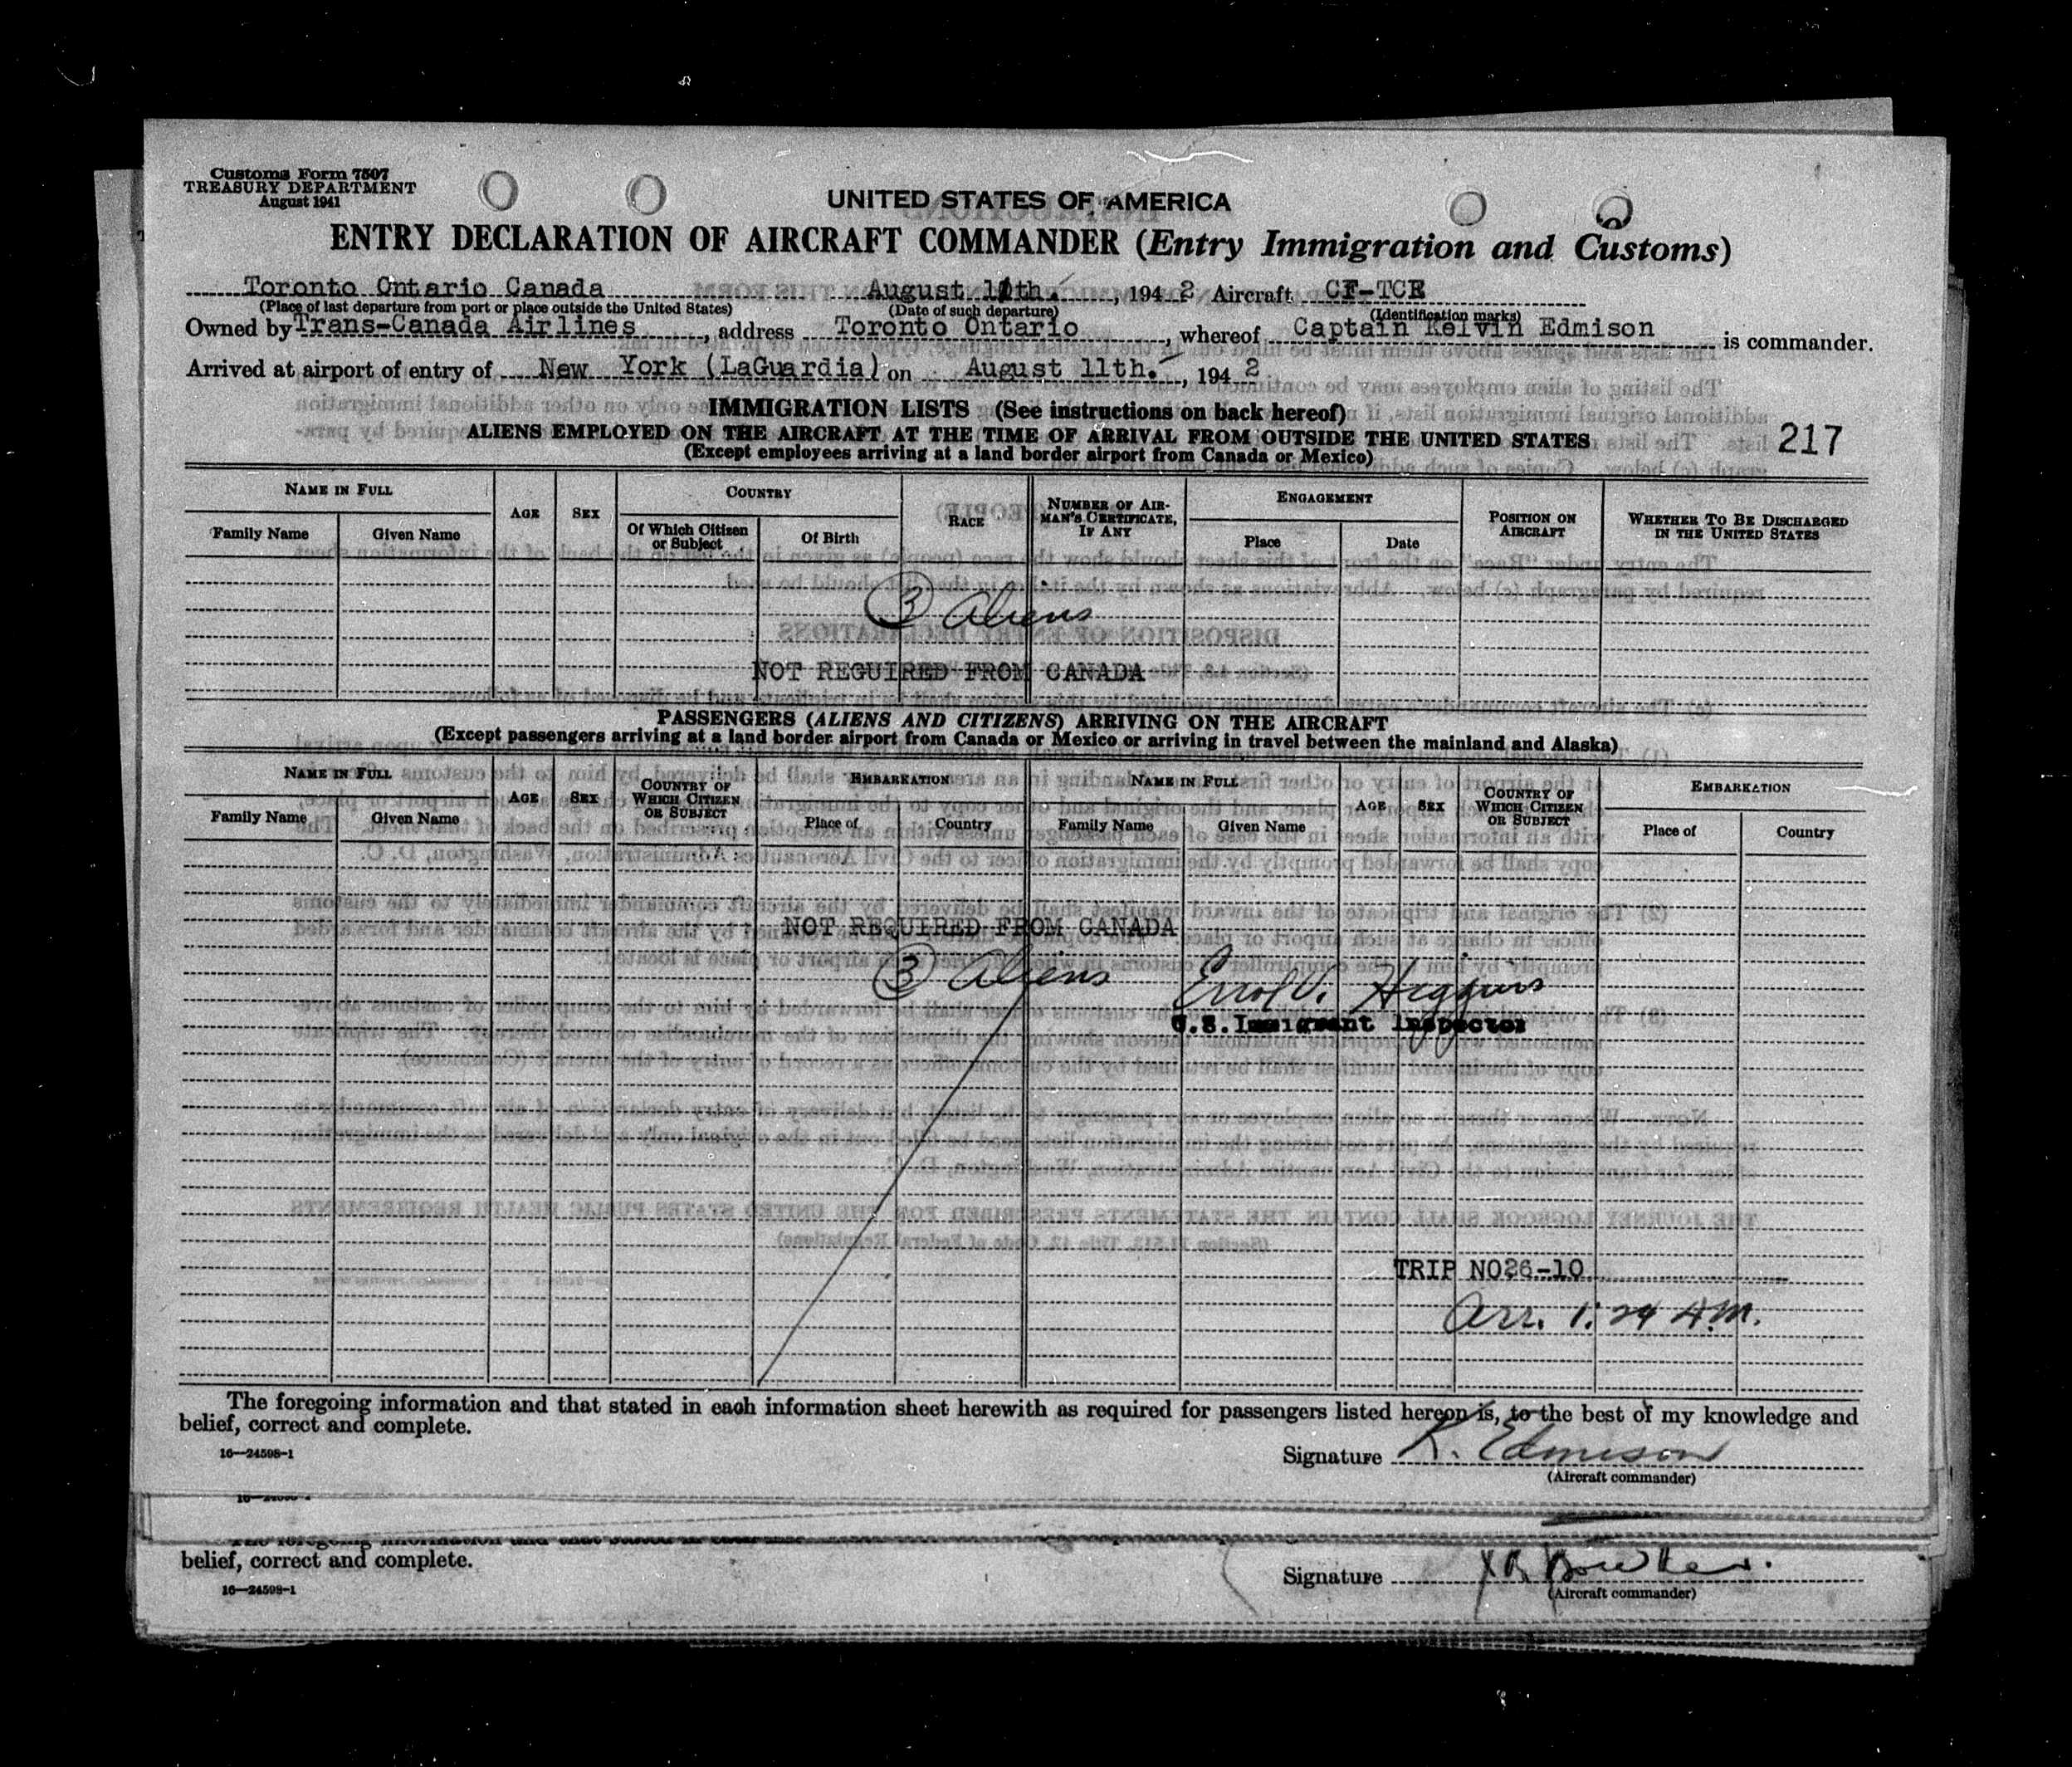 Customs Form 7507
TREASURY DEPARTMENT
August 1941
UNITED STATES OF AMERICA
ENTRY DECLARATION OF AIRCRAFT COMMANDER (Entry Immigration and Customs)
Toronto Ontario Canada August 11th. , 1942 Aircraft CF-TCE
(Place of last departure from port or place outside the United States) (Date of such departure) (Identification marks)
Owned by Trans-Canada Airlines , address Toronto Ontario , whereof Captain Kelvin Edmison is commander.
Arrived at airport of entry of New York (LaGuardia) on August 11th. , 1942
IMMIGRATION LISTS (See instructions on back hereof)
ALIENS EMPLOYED ON THE AIRCRAFT AT THE TIME OF ARRIVAL FROM OUTSIDE THE UNITED STATES
217
(Except employees arriving at a land border airport from Canada or Mexico)
NAME IN FULL AGE SEX COUNTRY RACE NUMBER OF AIRMAN'S CERTIFICATE, IF ANY ENGAGEMENT POSITION ON AIRCRAFT WHETHER TO BE DISCHARGED IN THE UNITED STATES
Family Name Given Name Of Which Citizen or Subject Of Birth Place Date
3 Aliens
NOT REQUIRED FROM CANADA
PASSENGERS (ALIENS AND CITIZENS) ARRIVING ON THE AIRCRAFT
(Except passengers arriving at a land border airport from Canada or Mexico or arriving in travel between the mainland and Alaska)
NAME IN FULL AGE SEX COUNTRY OF WHICH CITIZEN OR SUBJECT EMBARKATION NAME IN FULL AGE SEX COUNTRY OF WHICH CITIZEN OR SUBJECT EMBARKATION
Family Name Given Name Place of Country Family Name Given Name Place of Country
NOT REQUIRED FROM CANADA
3 Aliens Errol V. Higgins
U.S. Immigrant Inspector
TRIP NO26-10
Arr. 1:24 A.M.
The foregoing information and that stated in each information sheet herewith as required for passengers listed hereon is, to the best of my knowledge and
belief, correct and complete.
16—24598-1
Signature K. Edmison
(Aircraft commander)
belief, correct and complete.
16—24598-1
Signature
(Aircraft commander)